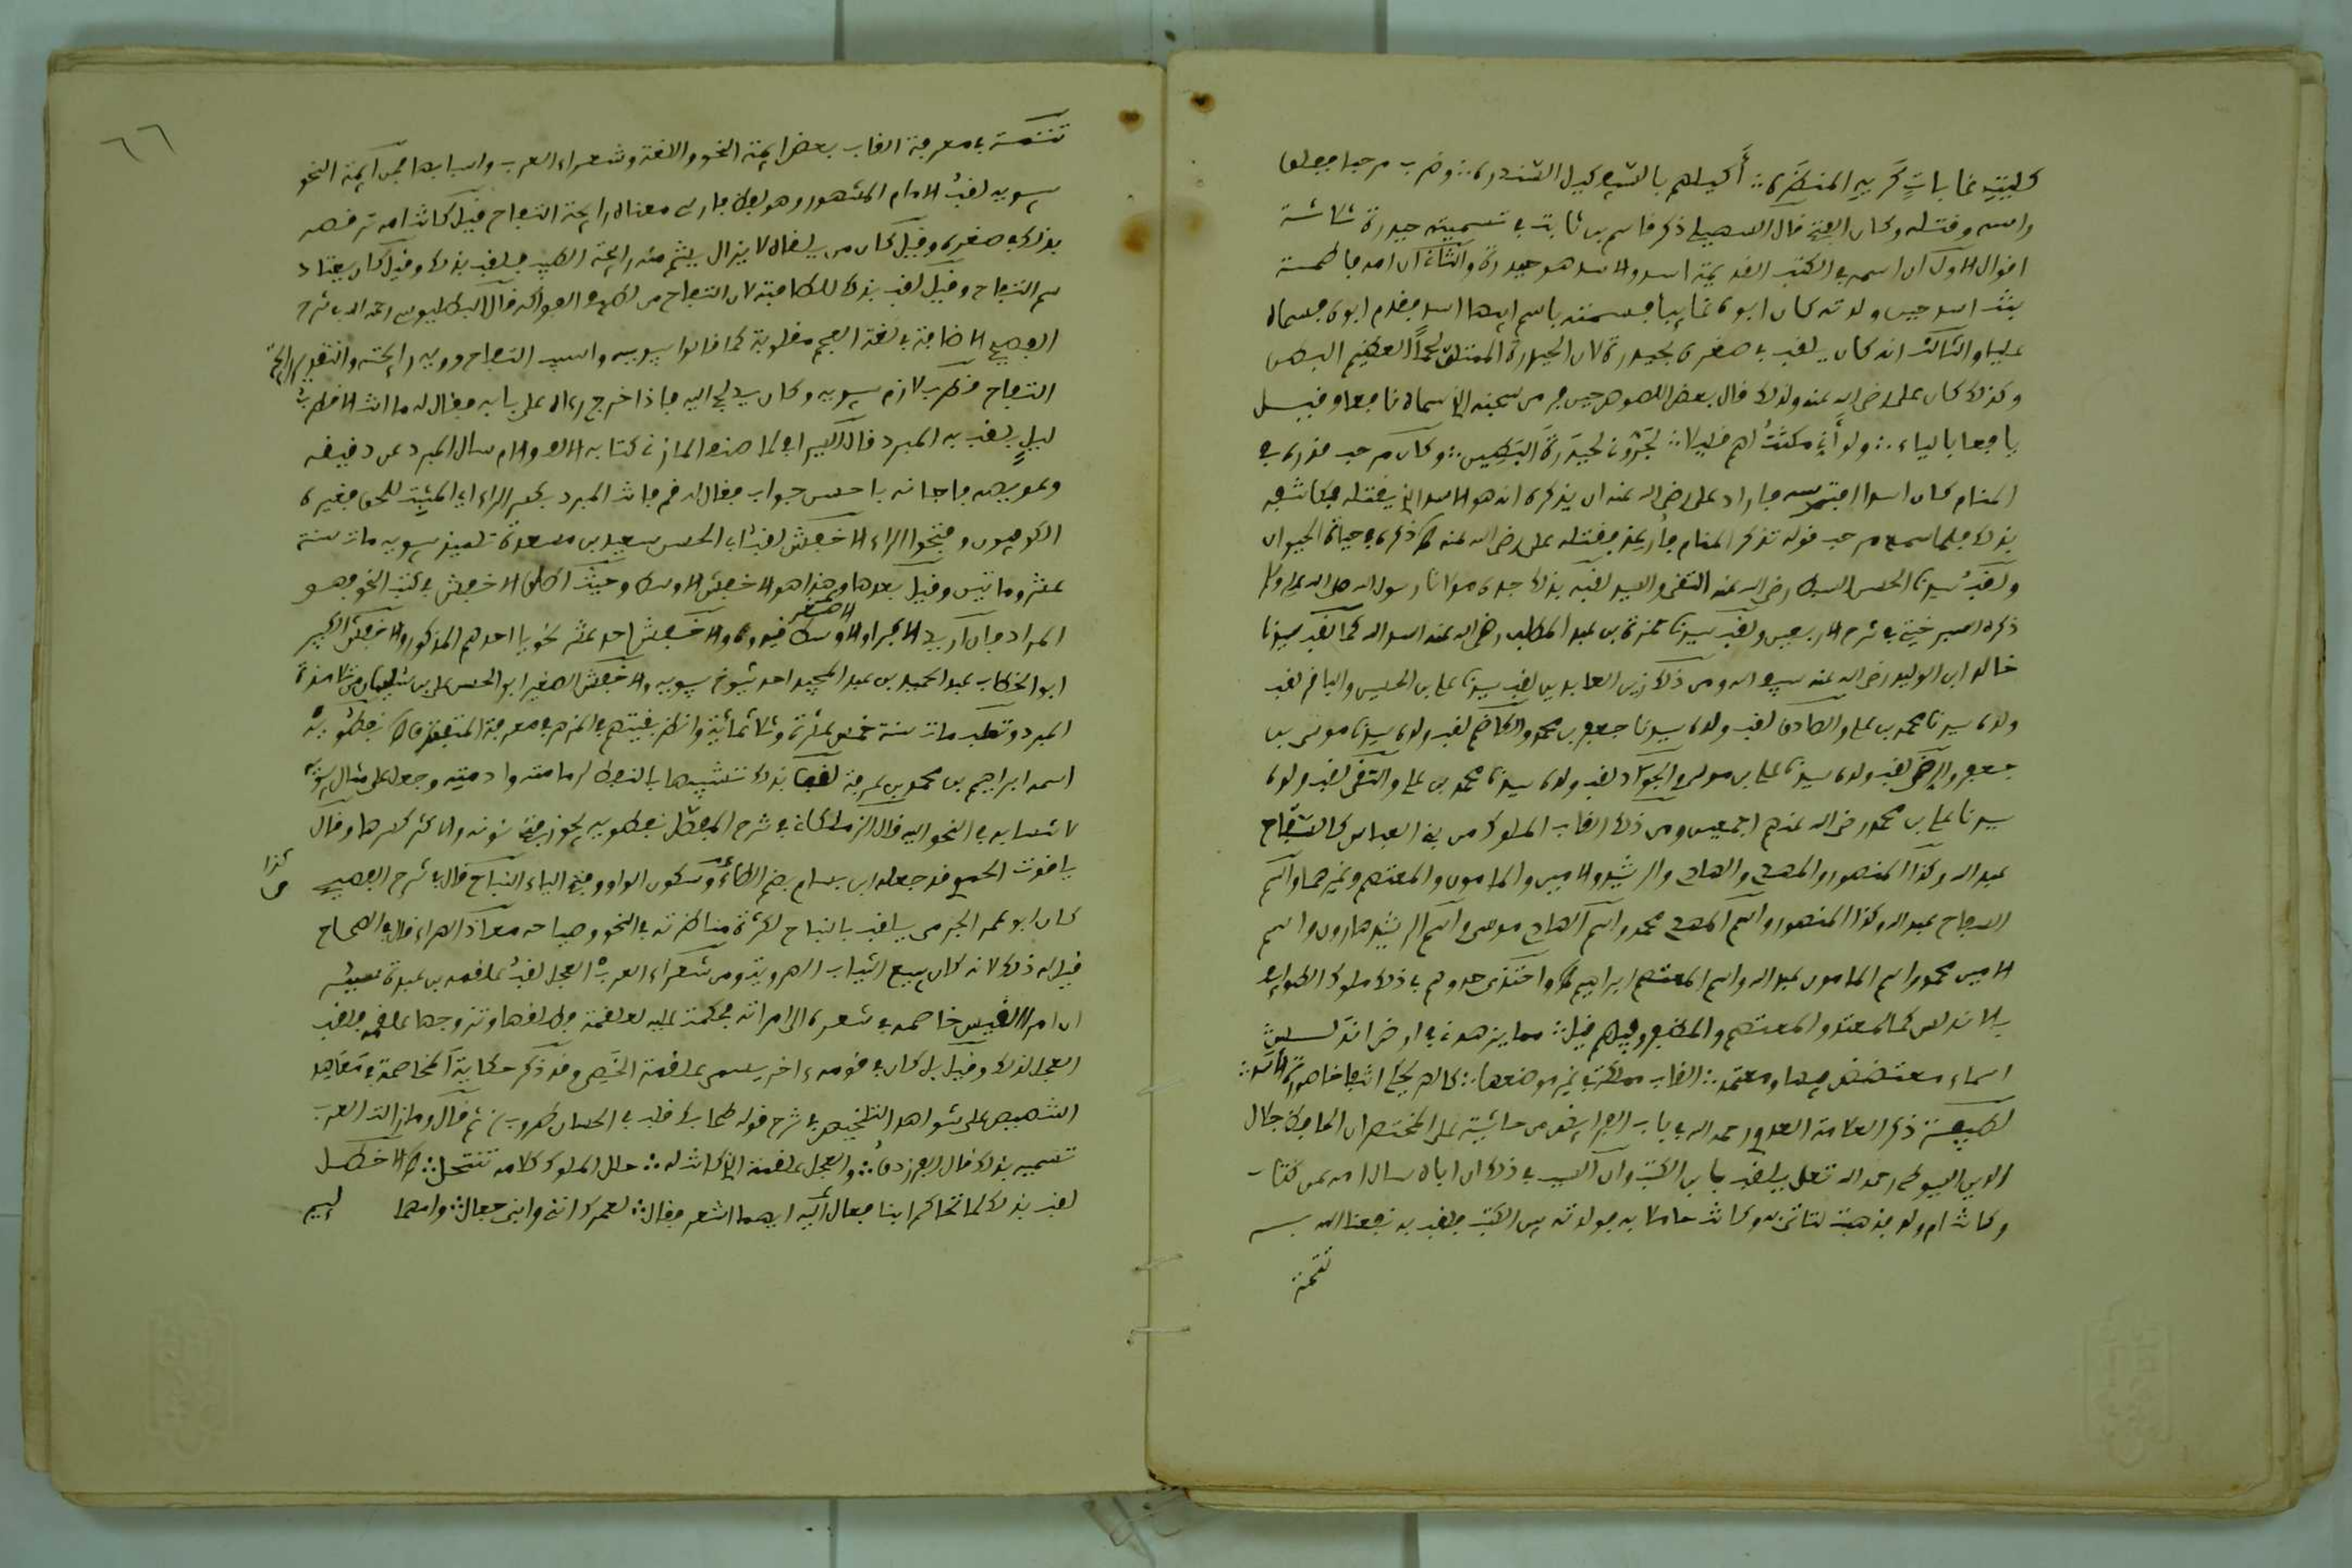 كليث غابات كريه المنظره أكيلهم بالسيف كيل السندره وضرب مرحبا ففلق
راسه وقتله وكان الفتح قال السهيلي ذكر قاسم بن ثابت في تسميته حيدرة ثلاثة
اقوال الاول ان اسمه في الكتب القديمة اسد والاسد هو حيدرة والثاني ان امه فاطمة
بنت اسد حين ولدته كان ابوه غايبا فسمته باسم ابيها اسد فقدم ابوه فسماه
عليا والثالث انه كان يلقب في صغره بحيدرة لان الحيدرة الممتلئ لحما العظيم البطن
وكذلك كان علي رضي الله عنه ولذلك قال بعض اللصوص حين فر من سجنه الذي سماه نافعا وقيل
يافعا بالياء ولو أني مكثت لهم قليلا لجروني لحيدرة البطين وكان مرحب قد رءى في
المنام كان اسدا افترسه فاراد علي رضي الله عنه ان يذكره انه هو الاسد الذي يقتله فكاشفه
بذلك فلما سمع مرحب قوله تذكر المنام فأرعد فقتله علي رضي الله عنه ذكره في حياة الحيوان
ولقب سيدنا الحسن السبط رضي الله عنه التقي والسيد لقبه بذلك جده مولانا رسول الله صلى الله عليه وسلم
ذكره في شرح الاربعين ولقب سيدنا حمزة بن عبد المطلب رضي الله عنه اسد الله كما لقب سيدنا
خالد ابن الوليد رضي الله عنه سيف الله ومن ذلك زين العابدين لقب سيدنا علي بن الحسين والباقر لقب
ولده سيدنا محمد بن علي والصادق لقب ولده سيدنا جعفر بن محمد والكاظم لقب ولده سيدنا موسى بن
جعفر والرضى لقب ولده سيدنا علي بن موسى والجواد لقب ولده سيدنا محمد بن علي والتقي لقب ولده
سيدنا علي بن محمد رضي الله عنهم اجمعين ومن ذلك القاب الملوك من بني العباس كالسفاح
عبد الله وكذا المنصور والمهدي والهادي والرشيد والامين والمامون والمعتصم وغيرهما واسم
السفاح عبد الله وكذا المنصور واسم المهدي محمد واسم الهادي موسى واسم الرشيد هارون واسم
الامين محمد واسم المامون عبد الله واسم المعتصم ابراهيم واحتذى حذوهم في ذلك ملوك الطوايف
بالاندلس كالمعتمد والمعتصم والمظفر وفيهم قيل مما يزهدني في ارض اندلس
اسماء معتضد فيها ومعتمد القاب مملكة في غير موضعها كالهر يحكي انتفاخا صورة الاسد
لطيفة ذكر العلامة العدوي رحمه الله في باب الفرايض من حاشيته على المختصر ان الحافظ جلال
الدين السيوطي رحمه الله تعلى يلقب بابن الكتب وان السبب في ذلك ان اباه سال امه عن كتاب
وكانت ام ولد فذهبت لتاتي به وكانت حاملا به فولدته بين الكتب فلقب به نفعنا الله به
تتمة
٦٦
تتمة في معرفة القاب بعض ايمة النحو واللغة وشعراء العرب واسبابها فمن ايمة النحو
سيبويه لقب الامام المشهور وهو لفظ فارسي معناه رايحة التفاح قيل كانت امه ترقصه
بذلك في صغره وقيل كان من يلقاه لا يزال يشم منه رايحة الطيب فلقب بذلك وقيل كان يعتاد
شم التفاح وقيل لقب بذلك للطافته لان التفاح من لطيف الفواكه قال البطليوسي رحمه الله في شرح
الفصيح الاضافة في لغة العجم مقلوبة كما قالوا سيبويه والسيب التفاح وويه رايحته والتقدير رايحة
التفاح قطرب لازم سيبويه وكان يدلج اليه فاذا خرج رءاه على بابه فقال له ما انت الا قطرب
ليل فلقب به المبرد قال السيرافي لما صنف المازني كتابه الالف والام سال المبرد عن دقيقه
وعويصه فاجابه باحسن جواب فقال له قم فانت المبرد بكسر الراء اي المثبت للحق فغيره
الكوفيون وفتحوا الراء الاخفش لقب ابي الحسن سعيد بن مسعدة تلميذ سيبويه مات سنة
عشر وماتين وقيل بعدها وهذا هو الاخفش الاوسط وحيث اطلق الاخفش في كتب النحو فهو
المراد فان اريد الاكبر او الاصغر قيدوه والاخفش احد عشر نحويا احدهم المذكور والاخفش الكبير
ابو الخطاب عبد الحميد بن عبد المجيد احد شيوخ سيبويه والاخفش الصغير ابو الحسن علي بن سليمان من تلامذة
المبرد وثعلب مات سنة خمس عشرة وثلاثمائة وانظر بقيتهم في المزهر في معرفة المتفق نفطويه
اسمه ابراهيم بن محمد بن عرفة لقب بذلك تشبيها بالنفط لدمامته وادمته وجعل على مثال سيبويه
لانتسابه في النحو اليه قال الزملكاني في شرح المفصل نفطويه يجوز فتح نونه والاكثر كسرها وقال
ياقوت الحموي قد جعله ابن بسام بضم الطاء وسكون الواو وفتح الياء النباح قال في شرح الفصيح
كان ابو عمر الجرمي يلقب بالنباح لكثرة مناظرته في النحو وصياحه معاذ الهراء قال في الصحاح
قيل له ذلك لانه كان يبيع الثياب الهروية ومن شعراء العرب الفحل لقب علقمة بن عبدة سببه
ان امرأ القيس خاصمه في شعره الى امراته فحكمت عليه لعلقمة فطلقها وتزوجها علقمة فلقب
الفحل لذلك وقيل بل كان في قومه ءاخر يسمى علقمة الخصي وقد ذكر حكاية المخاصمة في معاهد
التنصيص على شواهد التلخيص في شرح قوله طحا بك قلب في الحسان طروب ثم قال وما زالت العرب
تسميه بذلك قال الفرزدق والفحل علقمة الذي كانت له حلل الملوك كلامه تنتحل الاخطل
لقب بذلك لما تحاكم ابنا جعال اليه ايهما اشعر فقال لعمرك انني وابني جعال وامهما
لئيم
كذا